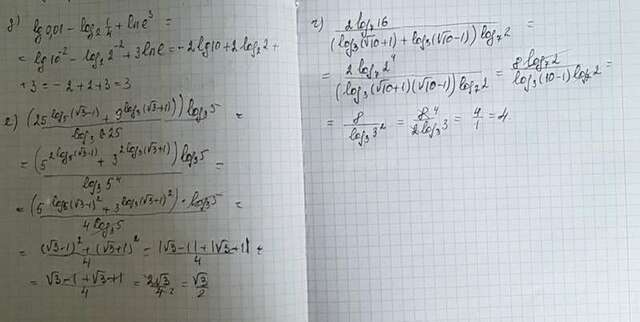 д) lg 0,01 - log₂ 1/4 + ln e³ =
= lg 10⁻² - log₂ 2⁻² + 3 ln e = -2 lg 10 + 2 log₂ 2 +
+ 3 = -2 + 2 + 3 = 3
e) (25^(log₅(√3-1)) + 9^(log₃(√3+1))) log₃ 5 / log₃ 25 =
= (5^(2 log₅(√3-1)) + 3^(2 log₃(√3+1))) log₃ 5 / log₃ 5⁴ =
= (5^(log₅(√3-1)²) + 3^(log₃(√3+1)²)) · log₃ 5 / 4 log₃ 5 =
= (√3-1)² + (√3+1)² / 4 = |√3-1| + |√3+1| / 4 =
= √3-1+√3+1 / 4 = 2√3 / 4₂ = √3 / 2
2 log₇ 16 / (log₃(√10+1) + log₃(√10-1)) log₇ 2 =
= 2 log₇ 2⁴ / (log₃(√10+1)(√10-1)) log₇ 2 = 8 log₇ 2 / log₃(10-1) log₇ 2 =
= 8 / log₃ 3² = 8⁴ / 2 log₃ 3 = 4 / 1 = 4